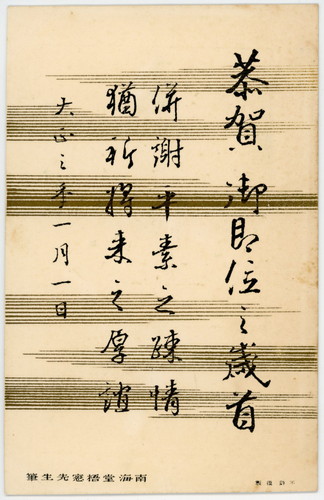 恭賀御即位之歳首
併謝平素之疎情
猶祈将来之厚誼
大正五年一月一日
南海堂梧窓先生筆